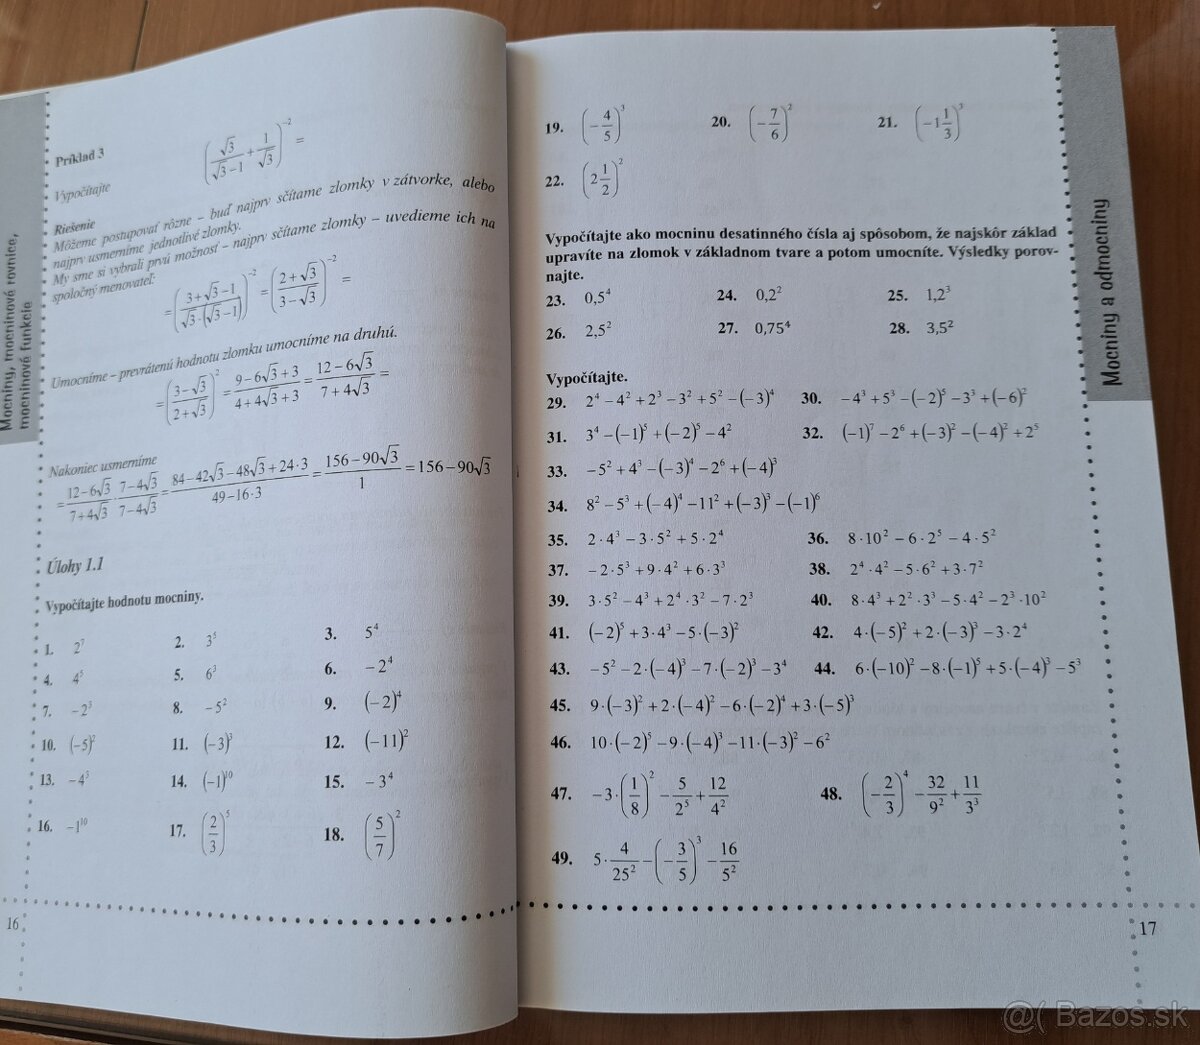 Mocniny, mocninové rovnice,
mocninové funkcie
Príklad 3
Vypočítajte (√3/(√3−1) + 1/√3)^−2 =
Riešenie
Môžeme postupovať rôzne – buď najprv sčítame zlomky v zátvorke, alebo
najprv usmerníme jednotlivé zlomky.
My sme si vybrali prvú možnosť – najprv sčítame zlomky – uvedieme ich na
spoločný menovateľ:
= ((3+√3−1)/(√3·(√3−1)))^−2 = ((2+√3)/(3−√3))^−2 =
Umocníme – prevrátenú hodnotu zlomku umocníme na druhú.
= ((3−√3)/(2+√3))^2 = (9−6√3+3)/(4+4√3+3) = (12−6√3)/(7+4√3) =
Nakoniec usmerníme
= (12−6√3)/(7+4√3) · (7−4√3)/(7−4√3) = (84−42√3−48√3+24·3)/(49−16·3) = (156−90√3)/1 = 156−90√3
Úlohy 1.1
Vypočítajte hodnotu mocniny.
1. 2^7 2. 3^5 3. 5^4
4. 4^5 5. 6^3 6. −2^4
7. −2^3 8. −5^2 9. (−2)^4
10. (−5)^2 11. (−3)^3 12. (−11)^2
13. −4^5 14. (−1)^10 15. −3^4
16. −1^10 17. (2/3)^5 18. (5/7)^2
16
19. (−4/5)^3 20. (−7/6)^2 21. (−1 1/3)^3
22. (2 1/2)^2
Vypočítajte ako mocninu desatinného čísla aj spôsobom, že najskôr základ
upravíte na zlomok v základnom tvare a potom umocníte. Výsledky porov-
najte.
23. 0,5^4 24. 0,2^2 25. 1,2^3
26. 2,5^2 27. 0,75^4 28. 3,5^2
Vypočítajte.
29. 2^4−4^2+2^3−3^2+5^2−(−3)^4 30. −4^3+5^3−(−2)^5−3^3+(−6)^2
31. 3^4−(−1)^5+(−2)^5−4^2 32. (−1)^7−2^6+(−3)^2−(−4)^2+2^5
33. −5^2+4^3−(−3)^4−2^6+(−4)^3
34. 8^2−5^3+(−4)^4−11^2+(−3)^3−(−1)^6
35. 2·4^3−3·5^2+5·2^4 36. 8·10^2−6·2^5−4·5^2
37. −2·5^3+9·4^2+6·3^3 38. 2^4·4^2−5·6^2+3·7^2
39. 3·5^2−4^3+2^4·3^2−7·2^3 40. 8·4^3+2^2·3^3−5·4^2−2^3·10^2
41. (−2)^5+3·4^3−5·(−3)^2 42. 4·(−5)^2+2·(−3)^3−3·2^4
43. −5^2−2·(−4)^3−7·(−2)^3−3^4 44. 6·(−10)^2−8·(−1)^5+5·(−4)^3−5^3
45. 9·(−3)^2+2·(−4)^2−6·(−2)^4+3·(−5)^3
46. 10·(−2)^5−9·(−4)^3−11·(−3)^2−6^2
47. −3·(1/8)^2−5/2^5+12/4^2 48. (−2/3)^4−32/9^2+11/3^3
49. 5·4/25^2−(−3/5)^3−16/5^2
17
Mocniny a odmocniny
@( Bazos.sk